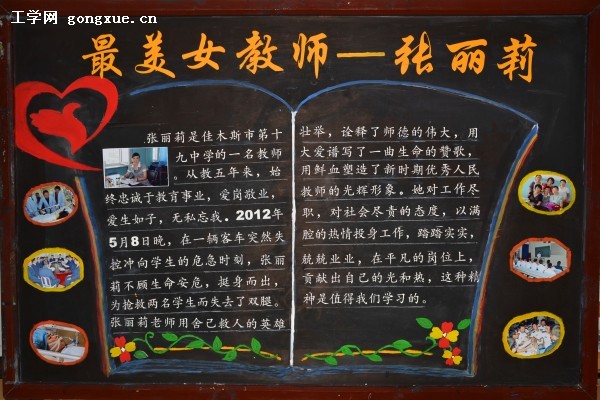 工学网 gongxue.cn
最美女教师—张丽莉
张丽莉是佳木斯市第十
九中学的一名教师
。从教五年来，始
终忠诚于教育事业，爱岗敬业，
爱生如子，无私忘我。2012年
5月8日晚，在一辆客车突然失
控冲向学生的危急时刻，张丽
莉不顾生命安危，挺身而出，
为抢救两名学生而失去了双腿。
张丽莉老师用舍己救人的英雄
壮举，诠释了师德的伟大，用
大爱谱写了一曲生命的赞歌，
用鲜血塑造了新时期优秀人民
教师的光辉形象。她对工作尽
职，对社会尽责的态度，以满
腔的热情投身工作，踏踏实实，
兢兢业业，在平凡的岗位上，
贡献出自己的光和热，这种精
神是值得我们学习的。